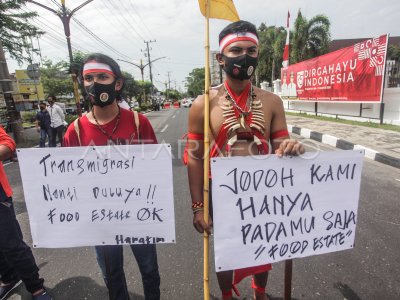 Transmigrasi
Nanti Dulu ya !!
Food Estate OK
Haratim
JODOH KAMI
HANYA
PADAMU SAJA
"FOOD ESTATE"
DIRGAHAYU
INDONESIA
ANTARA FOTO